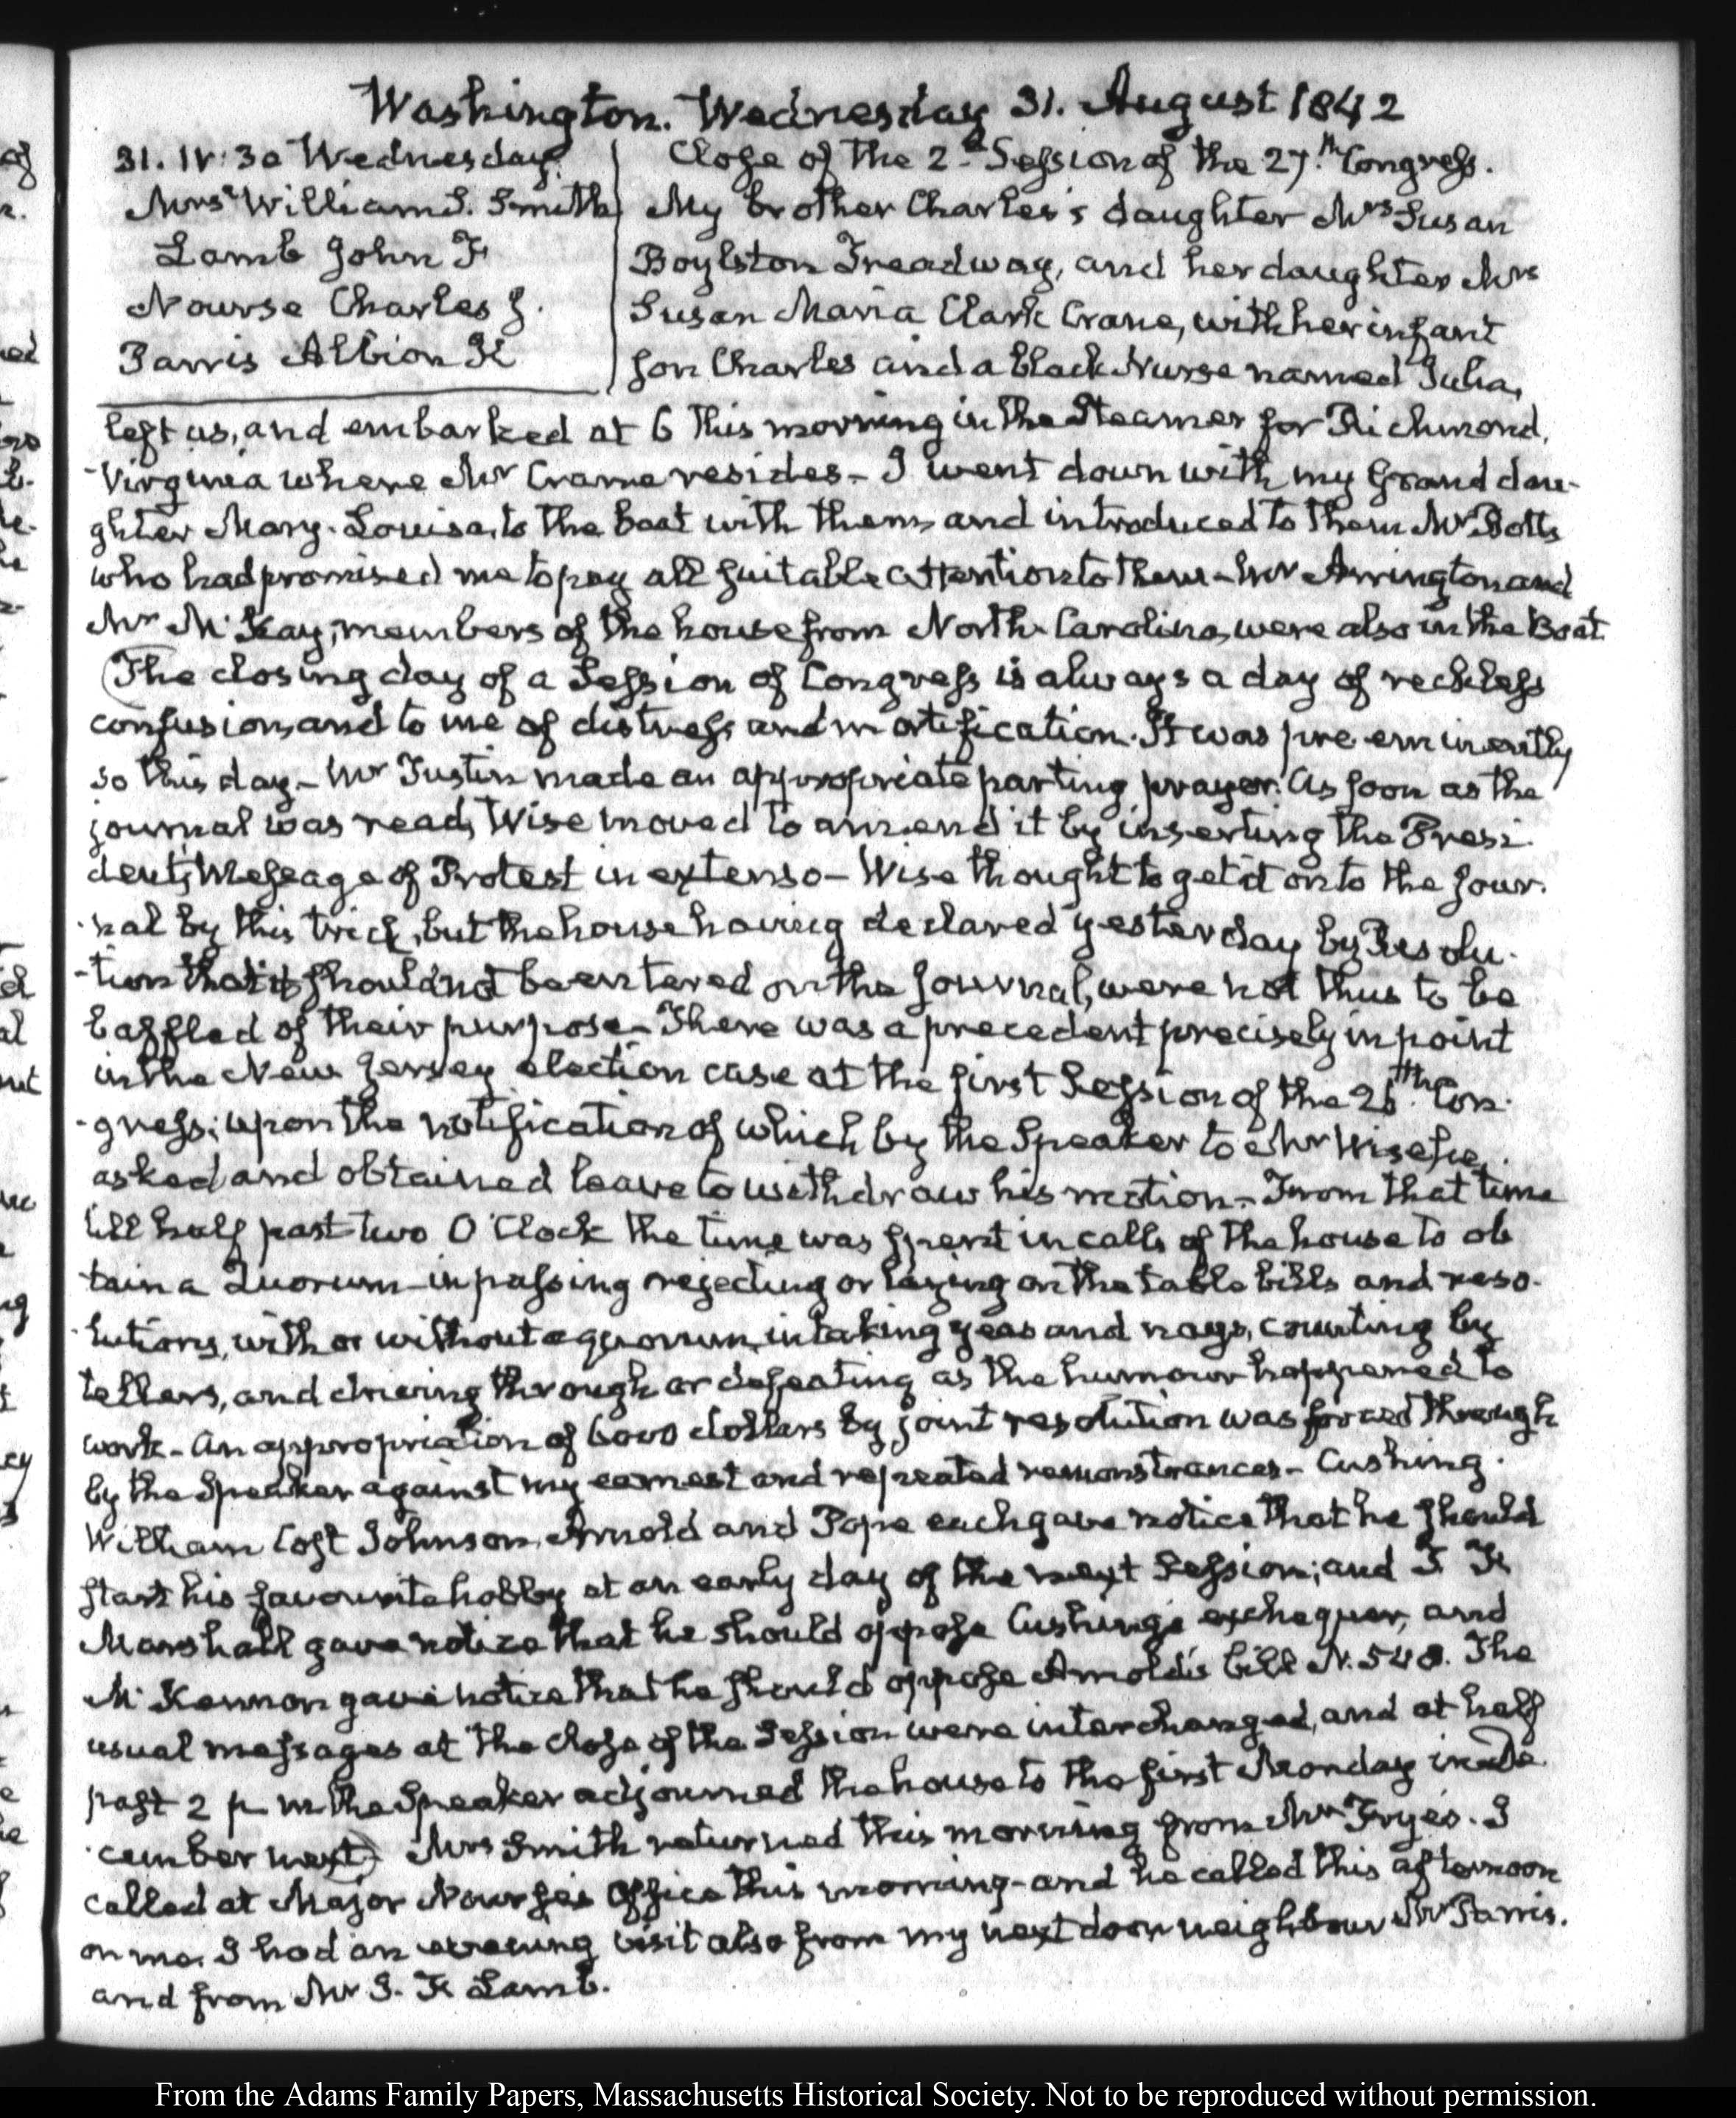 Washington. Wednesday 31. August 1842
31. IV: 30 Wednesday.
Mrs William S. Smith
Lamb John F
Nourse Charles J.
Parris Albion K
Close of the 2d Session of the 27.th Congress.
My brother Charles's daughter Mrs Susan
Boylston Treadway, and her daughter Mrs
Susan Maria Clark Crane, with her infant
son Charles and a black Nurse named Julia,
left us, and embarked at 6 this morning in the Steamer for Richmond,
Virginia where Mr Crane resides - I went down with my Grand dau-
ghter Mary-Louisa, to the boat with them, and introduced to them Mr Botts
who had promised me to pay all suitable attention to them - Mr Arrington and
Mr McKay, members of the house from North-Carolina, were also in the Boat.
(The closing day of a Session of Congress is always a day of reckless
confusion, and to me of distress and mortification. It was pre eminently
so this day - Mr Tustin made an appropriate parting prayer. As soon as the
journal was read, Wise moved to amend it by inserting the Presi-
dent's Message of Protest in extenso - Wise thought to get it onto the jour-
-nal by this trick, but the house having declared yesterday by Resolu-
-tion that it should not be entered on the journal, were not thus to be
baffled of their purpose - There was a precedent precisely in point
in the New Jersey election case at the first Session of the 26.th Con-
-gress; upon the notification of which by the Speaker to Mr Wise he
asked and obtained leave to withdraw his motion - From that time
till half past two O'Clock the time was spent in calls of the house to ob
tain a Quorum - in passing rejecting or laying on the table bills and reso-
-lutions, with or without a quorum, in taking yeas and nays, counting by
tellers, and driving through or defeating as the humour happened to
work - An appropriation of 6000 dollars by joint resolution was forced through
by the Speaker against my earnest and repeated remonstrances - Cushing.
William Cost Johnson, Arnold and Pope each gave notice that he should
start his favourite hobby at an early day of the next Session; and T F
Marshall gave notice that he should oppose Cushing's exchequer, and
McKennon gave notice that he should oppose Arnold's bill N. 548. The
usual messages at the close of the Session were interchanged, and at half
past 2 p. m the Speaker adjourned the house to the first Monday in De
-cember next) Mrs Smith returned this morning from Mr Frye's. I
called at Major Nourse's Office this morning - and he called this afternoon
on me. I had an evening visit also from my next door neighbour Mr Parris.
and from Mr J. F Lamb.
From the Adams Family Papers, Massachusetts Historical Society. Not to be reproduced without permission.